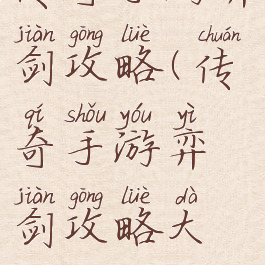 jiàn gōng lüè chuán
剑攻略(传
qí shǒu yóu yì
奇手游弈
jiàn gōng lüè dà
剑攻略大